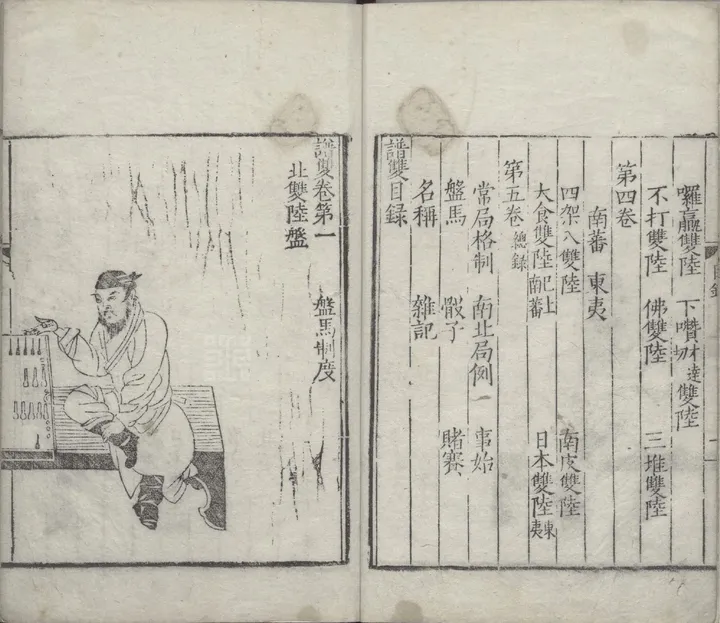 録
一
囉贏雙陸 下囋才達切雙陸
不打雙陸 佛雙陸 三堆雙陸
第四卷
南蕃 東夷
四架八雙陸 南皮雙陸
大食雙陸已上南蕃 日本雙陸東夷
第五卷總録
常局格制 南北局例一 事始
盤馬 骰子 賭賽
名稱 雜記
譜雙目録
譜雙卷第一 盤馬制度
北雙陸盤